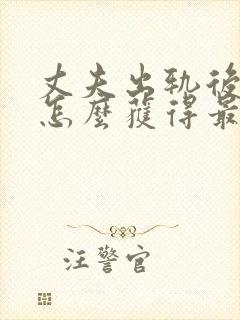 丈夫出轨後
怎麼獲得最
汪警官